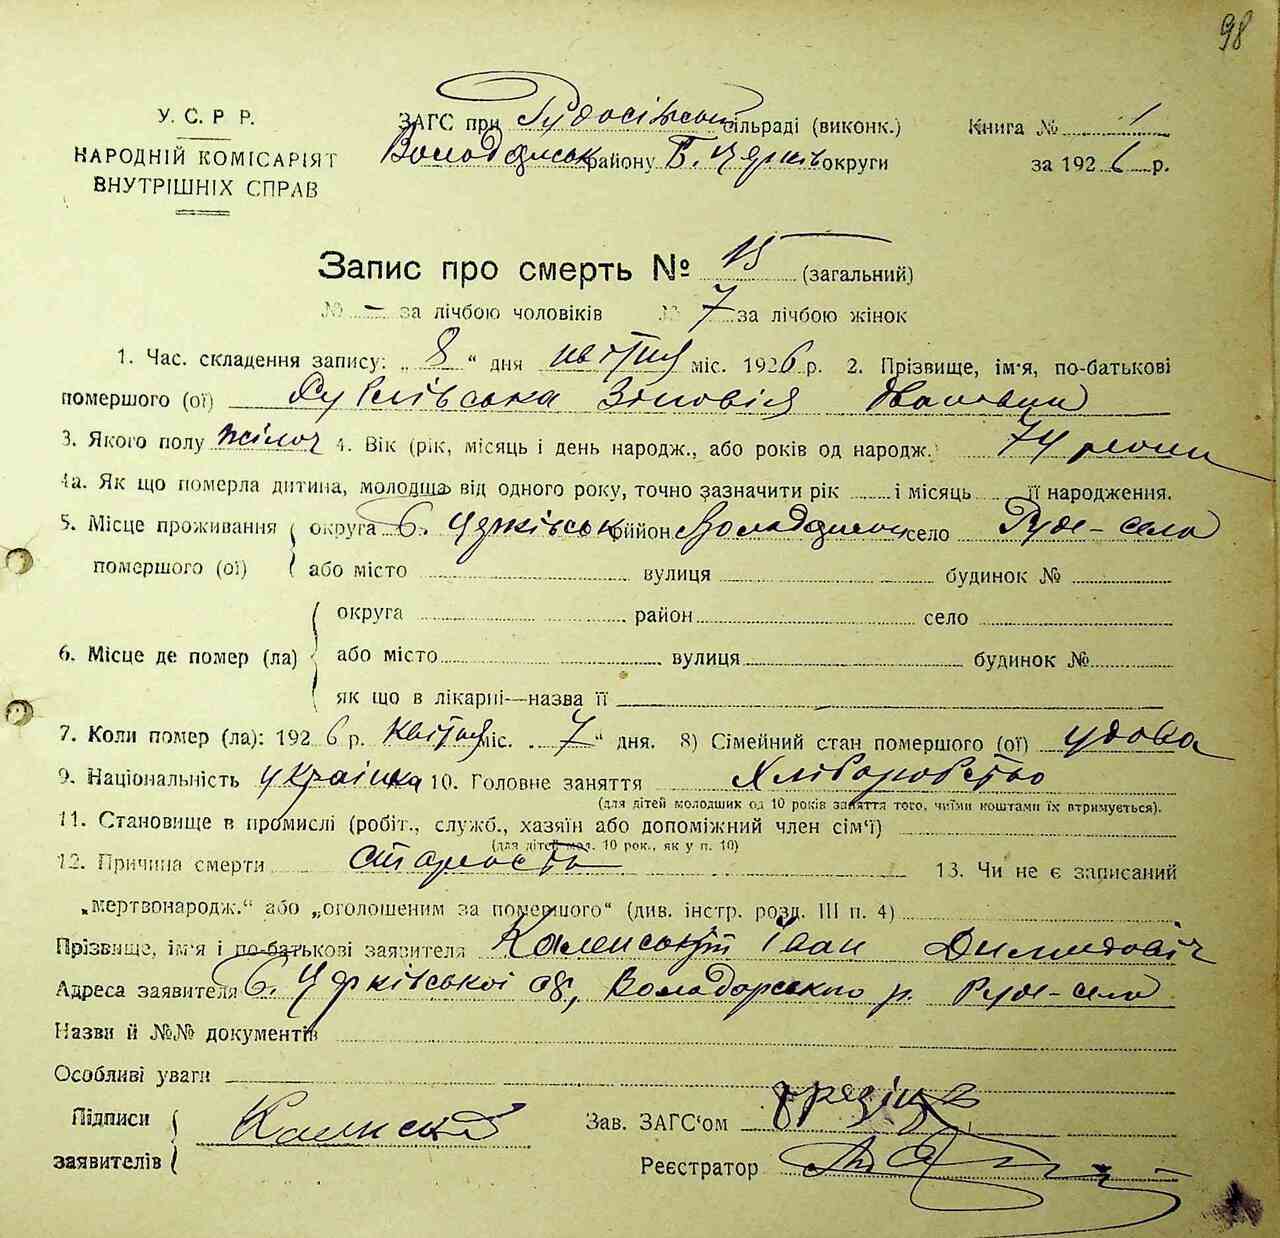 98
У. С. Р. Р.
НАРОДНІЙ КОМІСАРІЯТ
ВНУТРІШНІХ СПРАВ
ЗАГС при Рудосільськ сільраді (виконк.)
Володарськ району Б. Церків округи
Книга № 1
за 1926 р.
Запис про смерть № 15 (загальний)
№ – за лічбою чоловіків № 7 за лічбою жінок
1. Час. складення запису: „ 8 “ дня квітня міс. 1926 р. 2. Прізвище, ім'я, по-батькові
помершого (ої) Зіновія
3. Якого полу жіноч 4. Вік (рік, місяць і день народж., або років од народж.) 74 роки
4а. Як що померла дитина, молодша від одного року, точно зазначити рік і місяць її народження.
5. Місце проживання помершого (ої) округа Б. Церківськ район Володарськ село Руде-село
або місто вулиця будинок №
6. Місце де помер (ла) округа район село
або місто вулиця будинок №
як що в лікарні—назва її
7. Коли помер (ла): 1926 р. квітня міс. „ 7 “ дня. 8) Сімейний стан помершого (ої) удова
9. Національність українка 10. Головне заняття Хліборобство
(для дітей молодших од 10 років заняття того, чиїми коштами їх втримується).
11. Становище в промислі (робіт., служб., хазяїн або допоміжний член сім'ї)
(для дітей мол. 10 рок., як у п. 10)
12. Причина смерти старость 13. Чи не є записаний
„мертвонародж.“ або „оголошеним за помершого“ (див. інстр. розд. III п. 4)
Прізвище, ім'я і по-батькові заявителя Каменський Іван Димидович
Адреса заявителя Б. Церківської ок., Володарського р. Руде-село
Назви й №№ документів
Особливі уваги
Підписи заявителів Каменский
Зав. ЗАГС'ом
Реєстратор